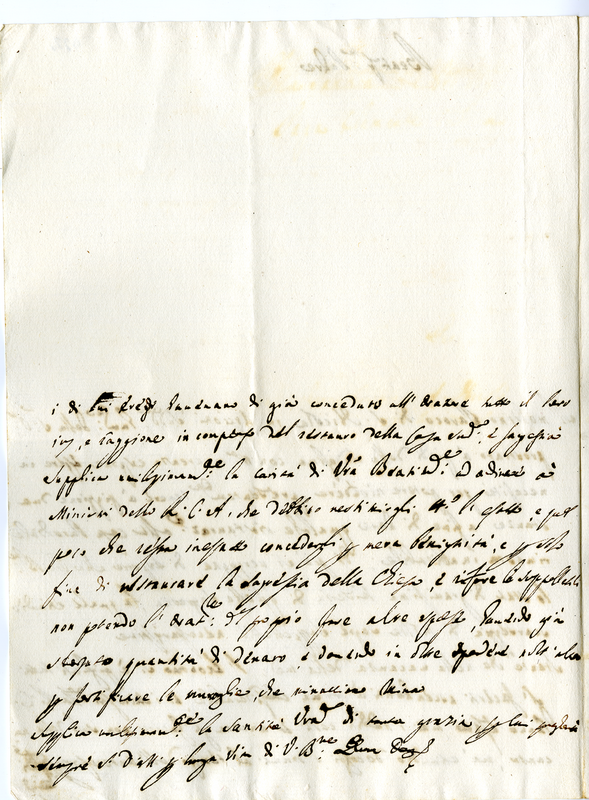 i di lui Eredi havevano di già conceduto all' Oratore tutto il loro
ius, e raggione in compenso del restauro della Casa sud.a e sagrestia
supplica umilissimam.te la carità di V.ra Beatitud.e ad ordinare à
Ministri della R. C. A. che debbino restituirgli l' esatto, e quel
poco che resta inesatto concedergli p mera benignità, e p solo
fine di restaurare la sagrestia della Chiesa, e rifare le suppellettili
non potendo l' Orat.re d' proprio fare altre spese, havendo già
sborzato quantità di denaro e dovendo in oltre spendere
p fortificare le muraglie, che minacciano ruina
supplica umilissimam.te la Santità V.ra di tanta grazia, p lui pregherà
sempre S. D. M. p lunga vita di V. B.ne